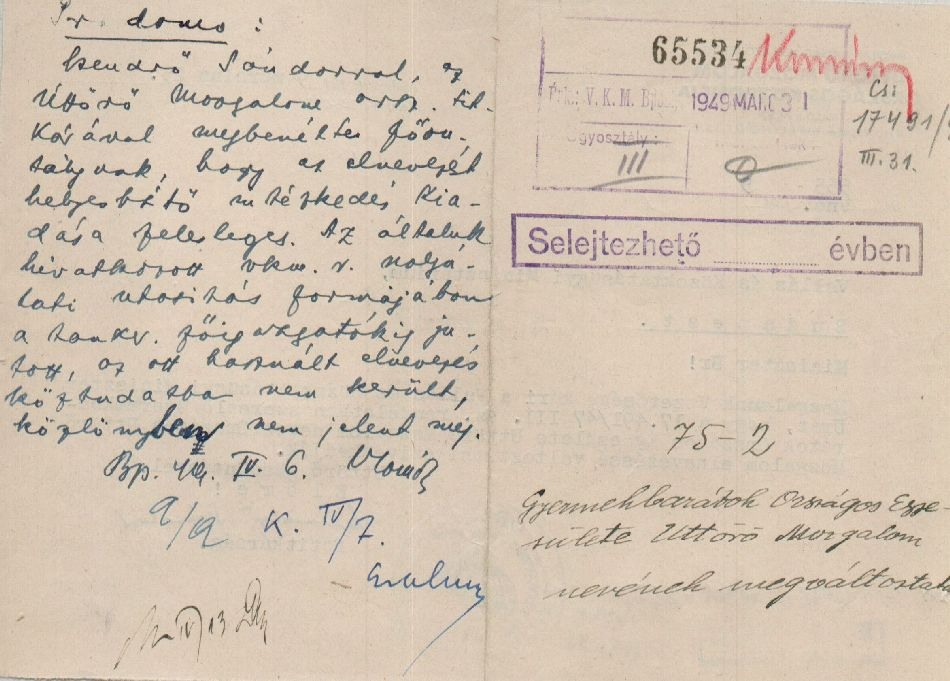 Pr. domo :
Kendrő Sándorral, az
Úttörő Mozgalom orsz. tit-
kárával megbeszéltem
hogy az elnevezést
helyesbítő intézkedés kia-
dása felesleges. Az általuk
hivatkozott vkm. r. 
utasítás formájában
a tank. főigazgatókig ju-
tott, az ott használt elnevezés
köztudatba nem került,
közlönyben nem jelent meg.
Bp. IV. 6.
a/a K. IV/7.
IV/13
65534
Érk.: V. K. M. 1949 MÁRC 31
Ügyosztály:
III
Csi
17491/
III. 31.
Selejtezhető ............ évben
75-2
Gyermekbarátok Országos Egye-
sülete Úttörő Mozgalom
nevének megváltoztatá